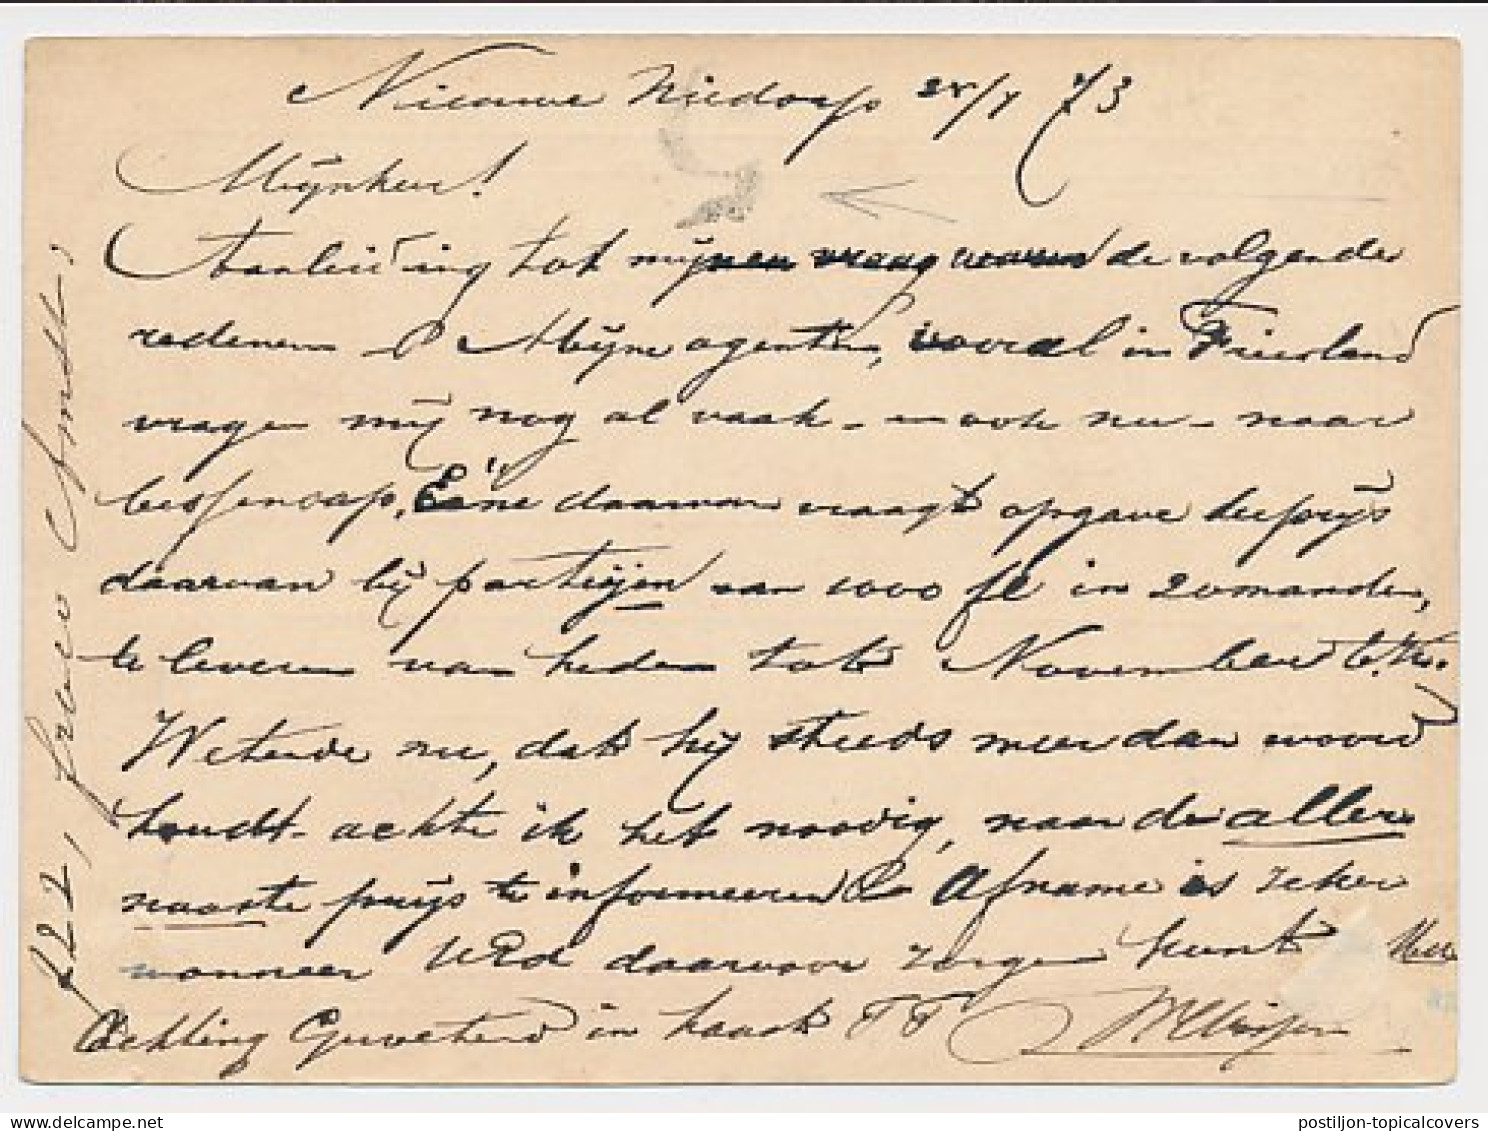 Nieuwe Niedorp 25/7 73
Mijnheer!
Aanleiding tot mijnen vraag waren de volgende
redenen Mijne agenten, vooral in Friesland
vragen mij nog al vaak - en ook nu - naar
bessensap. Eéne daarvan vraagt opgave der prijs
daarvan bij partijen van 1000 fl in 20manden,
te leveren van heden tot November e.k.
Wetende nu, dat hij steeds meer dan woord
houdt - achte ik het noodig, naar de aller
naaste prijs te informeeren Afname is zeker
wanneer UEd daarvoor zorgen kunt Met
Achting Groetend in haast TT
f 22, franco Amst.
postiljon-topicalcovers
delcampe.net